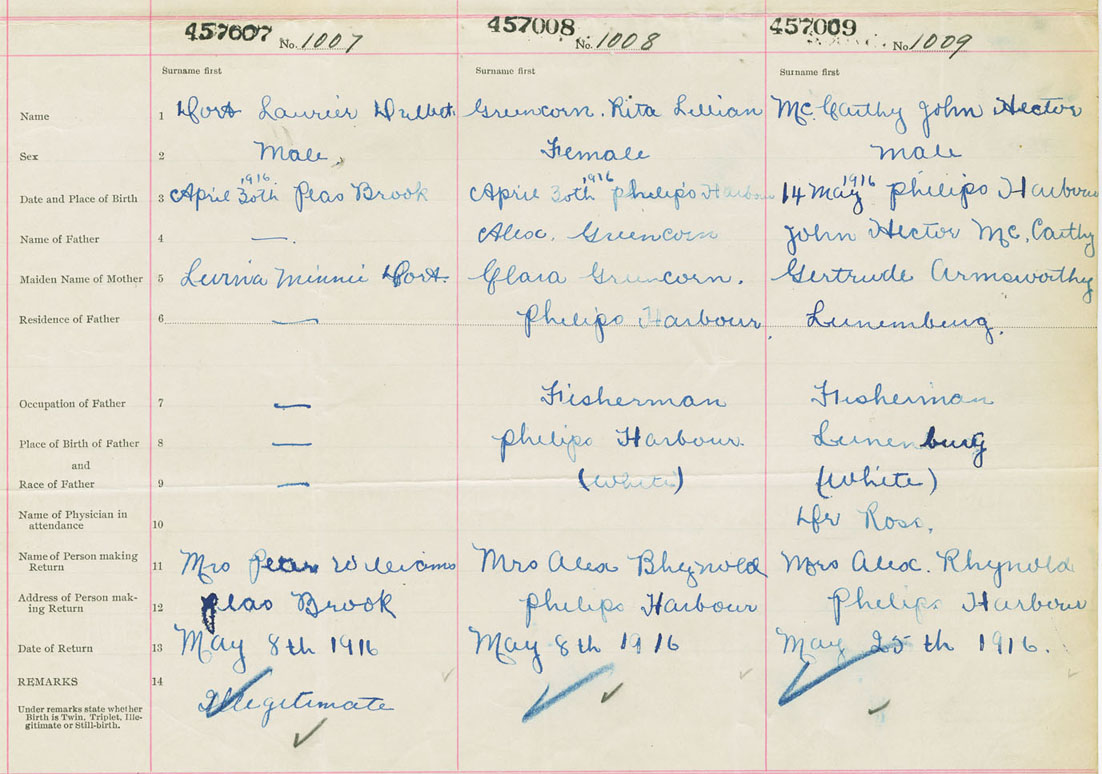 457007 No. 1007 457008 No. 1008 457009 No. 1009
Surname first Surname first Surname first
Name 1 Dort Laurier Greencorn. Rita Lillian Mc. Carthy John Hector
Sex 2 Male. Female Male
1916 1916 1916
Date and Place of Birth 3 April 30th Peas Brook April 30th Philips Harbour 14 May Philips Harbour
Name of Father 4 — . Alex. Greencorn John Hector Mc. Carthy
Maiden Name of Mother 5 Levina Minnie Dort. Clara Greencorn. Gertrude Armsworthy
Residence of Father 6 — Philips Harbour Lunenburg.
Occupation of Father 7 — Fisherman Fisherman
Place of Birth of Father 8 — Philips Harbour. Lunenburg
and
Race of Father 9 — (White) (White)
Name of Physician in
attendance 10 Dr Ross.
Name of Person making
Return 11 Mrs Peter Williams Mrs Alex Rhynold Mrs Alex. Rhynold
Address of Person mak-
ing Return 12 Peas Brook Philips Harbour Philips Harbour
Date of Return 13 May 8th 1916 May 8th 1916 May 25th 1916.
REMARKS 14
Under remarks state whether
Birth is Twin, Triplet, Ille-
gitimate or Still-birth.
Illegitimate